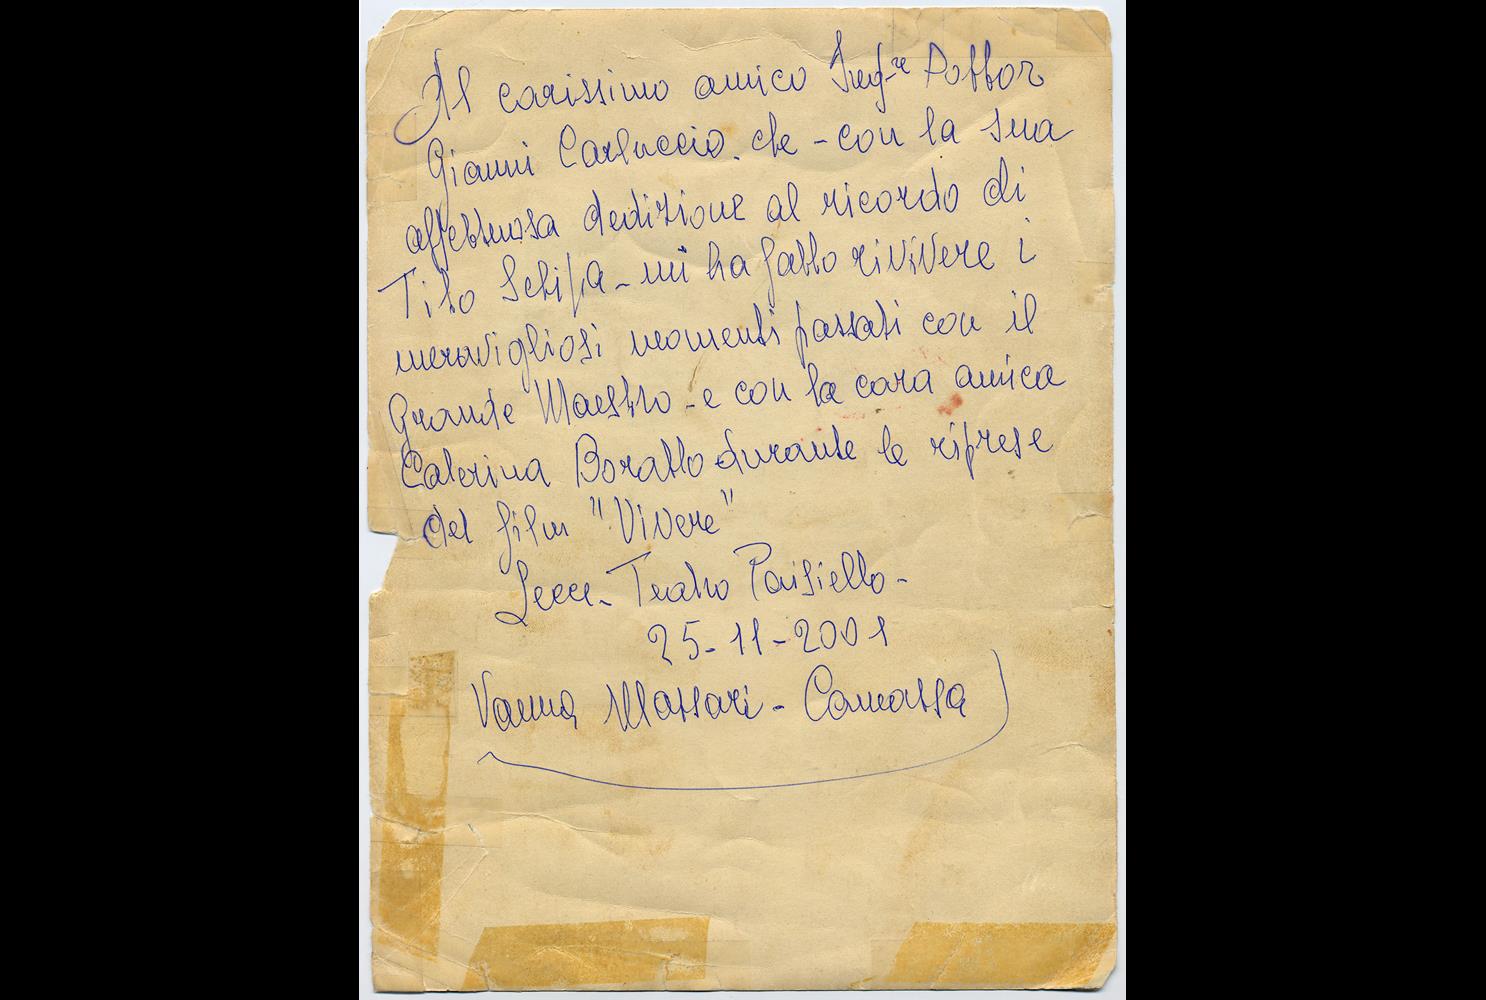 Al carissimo amico Ing.re Dottor
Gianni Carluccio. che - con la sua
affettuosa dedizione al ricordo di
Tito Schipa - mi ha fatto rivivere i
meravigliosi momenti passati con il
Grande Maestro - e con la cara amica
Caterina Boratto durante le riprese
del film "Vivere"
Lecce - Teatro Paisiello -
25-11-2001
Vanna Massari - Camassa